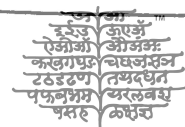 अ आ ™
इ ई उ ऊ ए अॅ
ऐ ओ औ ओ अं अः
क ख ग घ ङ च छ ज झ ञ
ट ठ ड ढ ण त थ द ध न
प फ ब भ म य र ल व श
ष स ह ळ क्ष ज्ञ